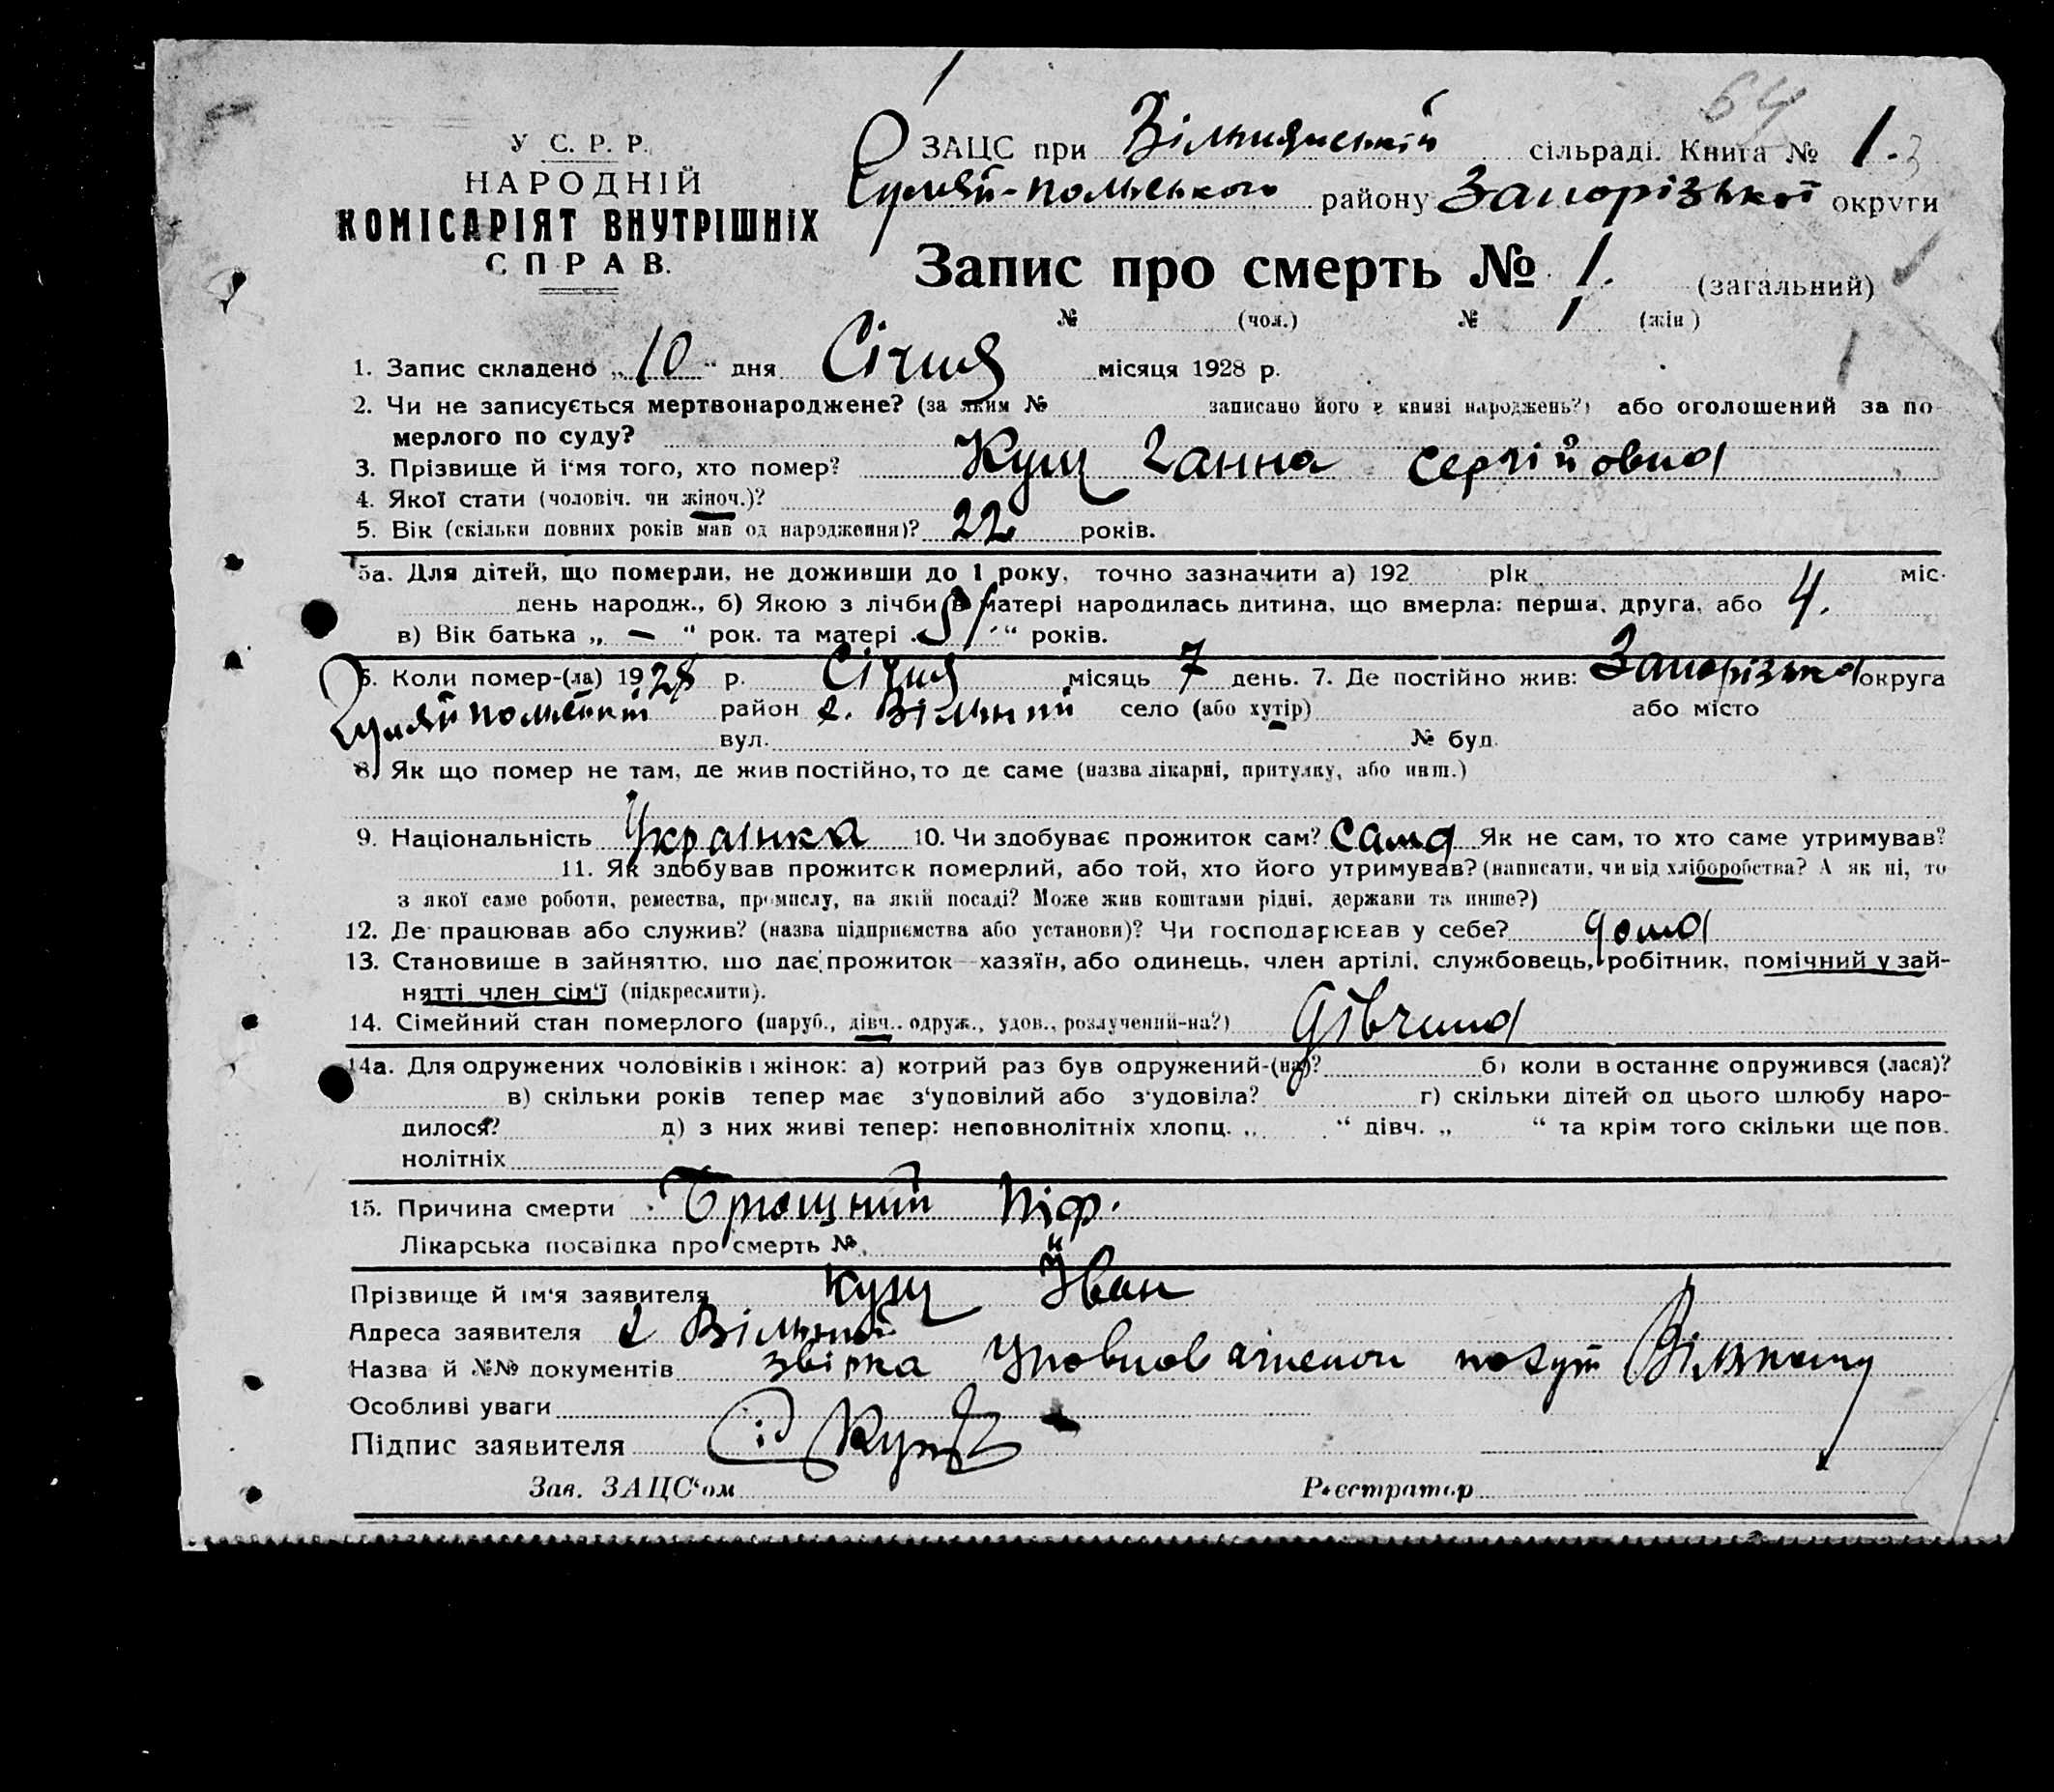 64
У С. Р. Р.
НАРОДНІЙ
КОМІСАРІЯТ ВНУТРІШНІХ
СПРАВ.
ЗАЦС при Вільнянській сільраді. Книга № 1.
Гуляй-польського району Запорізької округи
Запис про смерть № 1. (загальний)
№ (чол.) № 1 (жін)
1. Запис складено „10“ дня Січня місяця 1928 р.
2. Чи не записується мертвонароджене? (за яким № записано його в книзі народжень?) або оголошений за по-
мерлого по суду?
3. Прізвище й ім'я того, хто помер? Кущ Ганна Сергійовна
4. Якої стати (чоловіч. чи жіноч.)?
5. Вік (скільки повних років мав од народження)? 22 років.
5а. Для дітей, що померли, не доживши до 1 року, точно зазначити а) 192 рік міс.
день народж., б) Якою з лічби в матері народилась дитина, що вмерла: перша, друга, або 4.
в) Вік батька „ — “ рок. та матері „ 51 “ років.
6. Коли помер-(ла) 1928 р. Січня місяць 7 день. 7. Де постійно жив: Запорізька округа
Гуляйпольський район х. Вільний село (або хутір) або місто
вул. № буд.
8. Як що помер не там, де жив постійно, то де саме (назва лікарні, притулку, або инш.)
9. Національність Українка 10. Чи здобуває прожиток сам? сама Як не сам, то хто саме утримував?
11. Як здобував прожиток померлий, або той, хто його утримував? (написати, чи від хліборобства? А як ні, то
з якої саме роботи, ремества, промислу, на якій посаді? Може жив коштами рідні, держави та инше?)
12. Де працював або служив? (назва підприємства або установи)? Чи господарював у себе? дома
13. Становище в зайняттю, що дає прожиток—хазяїн, або одинець, член артілі, службовець, робітник, помічний у зай-
нятті член сім'ї (підкреслити).
14. Сімейний стан померлого (паруб., дівч., одруж., удов., розлучений-на?) дівчина
14а. Для одружених чоловіків і жінок: а) котрий раз був одружений-(на)? б) коли востаннє одружився (лася)?
в) скільки років тепер має з'уповілий або з'удовіла? г) скільки дітей од цього шлюбу наро-
дилося? д) з них живі тепер: неповнолітніх хлопц. „ “ дівч. „ “ та крім того скільки ще пов.
нолітніх
15. Причина смерти Брюшний тіф.
Лікарська посвідка про смерть №
Прізвище й ім'я заявителя Кущ Іван
Адреса заявителя х Вільний
Назва й №№ документів звірка Уповноваженом по хут Вільному
Особливі уваги
Підпис заявителя І Кущ
Зав. ЗАЦС'ом Реєстратор